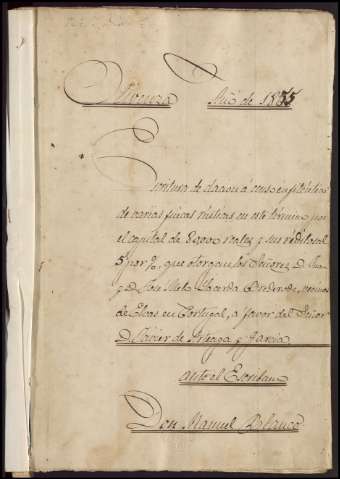 Olivenza Año de 1855
Escritura de dacion á censo enfiteutico
de varias fincas rústicas en este término por
el capital de reales y sus réditos al
5 por %, que otorgan los Señores D. Juan
y D. José Melo Lacerda vecinos
de Elvas en Portugal, a favor del Señor
D. Javier de Arteaga y García
ante el Escribano
Don Manuel Blanco